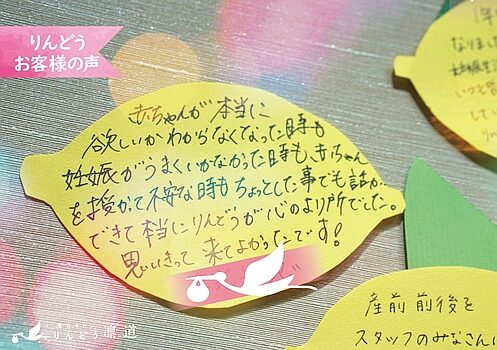 りんどう
お客様の声
赤ちゃんが本当に
欲しいかわからなくなった時も
妊娠がうまくいかなかった時も、赤ちゃん
を授かって不安な時もちょっとした事でも話が
できて本当にりんどうが心のより所でした。
思いきって来てよかったです!
なりました
産前産後を
スタッフのみなさんに
りんどう 凛道